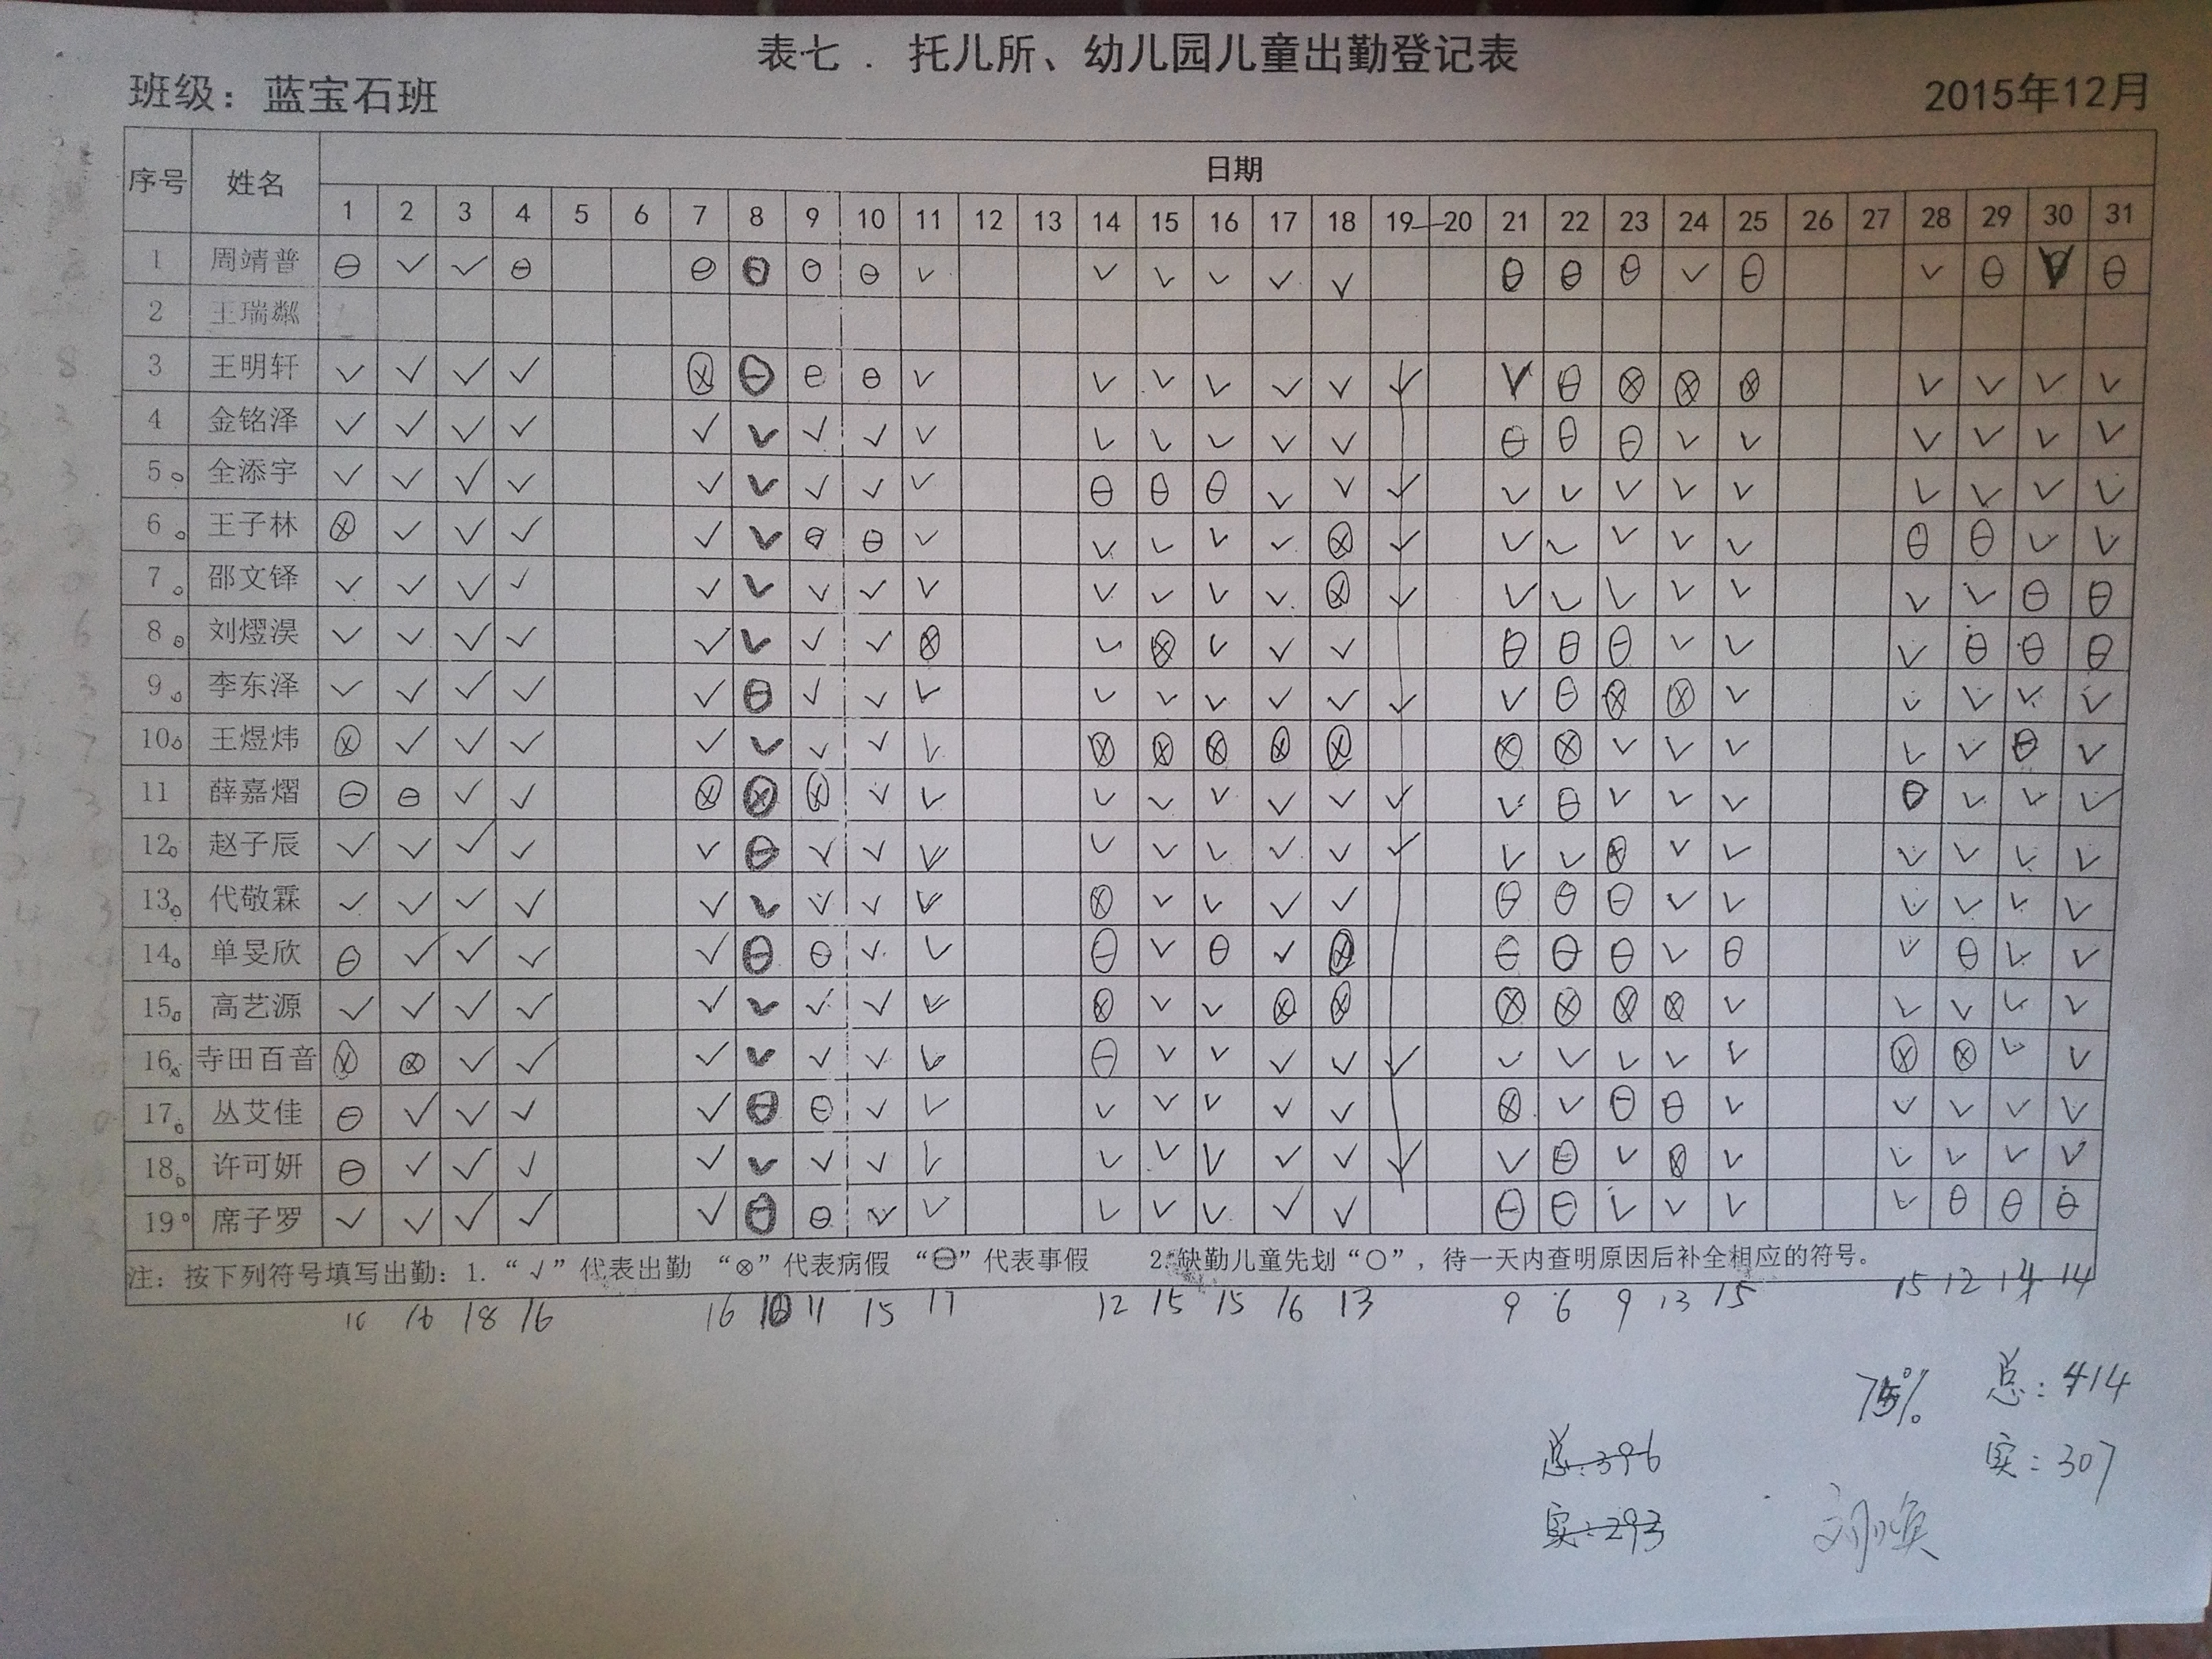 表七 . 托儿所、幼儿园儿童出勤登记表
班级：蓝宝石班 2015年12月
序号 姓名 日期
1 2 3 4 5 6 7 8 9 10 11 12 13 14 15 16 17 18 19 20 21 22 23 24 25 26 27 28 29 30 31
1 周靖普 ⊖ √ √ ⊖ ⊖ ⊖ ⊖ ⊖ √ √ √ √ √ √ ⊖ ⊖ ⊖ √ ⊖ √ ⊖ √ ⊖
2 王瑞粼
3 王明轩 √ √ √ √ ⊗ ⊖ ⊖ ⊖ √ √ √ √ √ √ √ √ ⊖ ⊗ ⊗ ⊗ √ √ √ √
4 金铭泽 √ √ √ √ √ √ √ √ √ √ √ √ √ √ ⊖ ⊖ ⊖ √ √ √ √ √ √
5 全添宇 √ √ √ √ √ √ √ √ √ ⊖ ⊖ ⊖ √ √ √ √ √ √ √ √ √ √ √ √
6 王子林 ⊗ √ √ √ √ √ ⊖ ⊖ √ √ √ √ √ ⊗ √ √ √ √ √ √ ⊖ ⊖ √ √
7 邵文铎 √ √ √ √ √ √ √ √ √ √ √ √ √ ⊗ √ √ √ √ √ √ √ √ ⊖ ⊖
8 刘熠淏 √ √ √ √ √ √ √ √ ⊗ √ ⊗ √ √ √ ⊖ ⊖ ⊖ √ √ √ ⊖ ⊖ ⊖
9 李东泽 √ √ √ √ √ ⊖ √ √ √ √ √ √ √ √ √ √ ⊖ ⊗ ⊗ √ √ √ √ √
10 王煜炜 ⊗ √ √ √ √ √ √ √ √ ⊗ ⊗ ⊗ ⊗ ⊗ ⊗ ⊗ √ √ √ √ √ ⊖ √
11 薛嘉熠 ⊖ ⊖ √ √ ⊗ ⊗ ⊗ √ √ √ √ √ √ √ √ √ ⊖ √ √ √ ⊖ √ √ √
12 赵子辰 √ √ √ √ √ ⊖ √ √ √ √ √ √ √ √ √ √ √ ⊗ √ √ √ √ √ √
13 代敬霖 √ √ √ √ √ √ √ √ √ ⊗ √ √ √ √ ⊖ ⊖ ⊖ √ √ √ √ √ √
14 单旻欣 ⊖ √ √ √ √ ⊖ ⊖ √ √ ⊖ √ ⊖ √ ⊗ ⊖ ⊖ ⊖ √ ⊖ √ ⊖ √ √
15 高艺源 √ √ √ √ √ √ √ √ √ ⊗ √ √ ⊗ ⊗ ⊗ ⊗ ⊗ ⊗ √ √ √ √ √
16 寺田百音 ⊗ ⊗ √ √ √ √ √ √ √ ⊖ √ √ √ √ √ √ √ √ √ √ ⊗ ⊗ √ √
17 丛艾佳 ⊖ √ √ √ √ ⊖ ⊖ √ √ √ √ √ √ √ ⊗ √ ⊖ ⊖ √ √ √ √ √
18 许可妍 ⊖ √ √ √ √ √ √ √ √ √ √ √ √ √ √ √ ⊖ √ ⊗ √ √ √ √ √
19 席子罗 √ √ √ √ √ ⊖ ⊖ √ √ √ √ √ √ √ ⊖ ⊖ √ √ √ √ ⊖ ⊖ ⊖
注：按下列符号填写出勤：1. “√”代表出勤 “⊗”代表病假 “⊖”代表事假 2.缺勤儿童先划“○”，待一天内查明原因后补全相应的符号。
16 18 16 16 10 11 15 17 12 15 15 16 13 9 6 9 13 15 15 12 14 14
75% 总：414
总：396 实：307
实：293